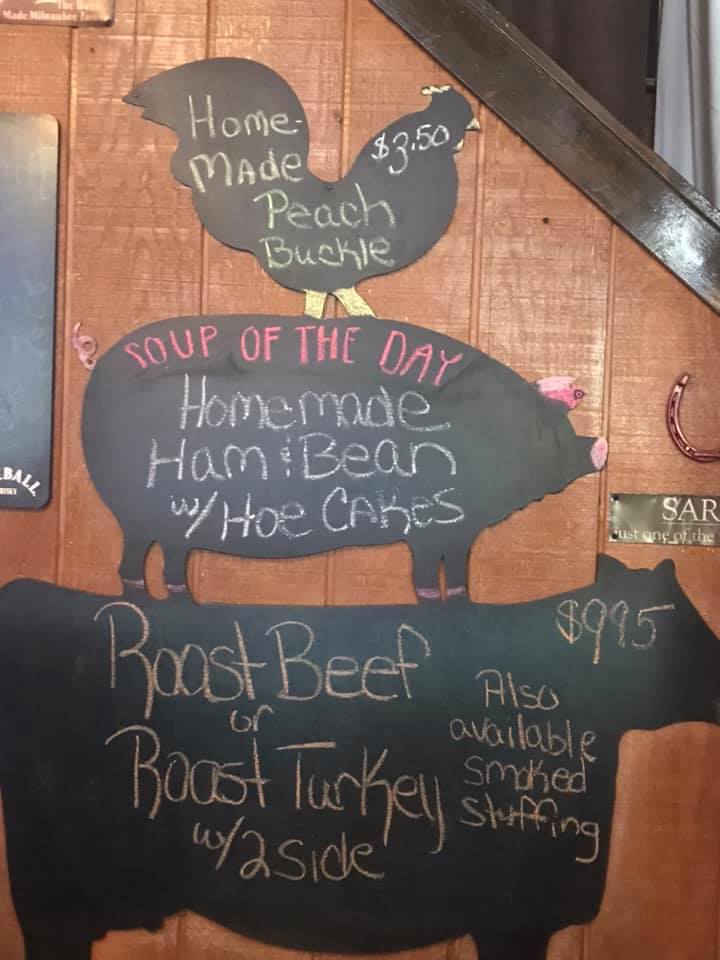 Made Milwaukee
Home-
Made
$3.50
Peach
Buckle
SOUP OF THE DAY
Homemade
Ham & Bean
w/ Hoe CAKes
BALL
SAR
just one of the
$995
Roast Beef
or
Roast Turkey
w/2 Side
Also
available
smoked
stuffing